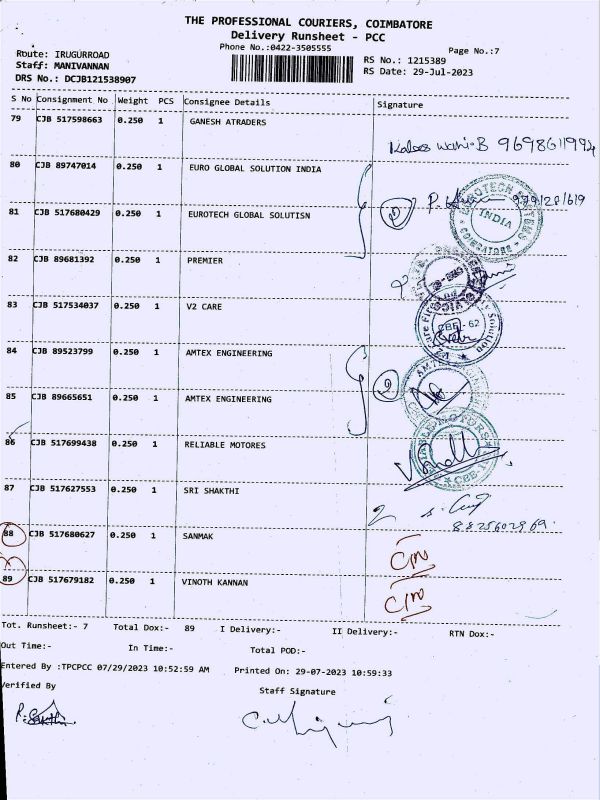 THE PROFESSIONAL COURIERS, COIMBATORE
Delivery Runsheet - PCC
Phone No.:0422-3505555
Page No.:7
Route: IRUGURROAD
Staff: MANIVANNAN
DRS No.: DCJB121538907
RS No.: 1215389
RS Date: 29-Jul-2023
S No Consignment No Weight PCS Consignee Details Signature
79 CJB 517598663 0.250 1 GANESH ATRADERS
80 CJB 89747014 0.250 1 EURO GLOBAL SOLUTION INDIA
81 CJB 517680429 0.250 1 EUROTECH GLOBAL SOLUTISN
2
EUROTECH SYSTEMS
INDIA
COIMBATORE
82 CJB 89681392 0.250 1 PREMIER
83 CJB 517534037 0.250 1 V2 CARE
84 CJB 89523799 0.250 1 AMTEX ENGINEERING
85 CJB 89665651 0.250 1 AMTEX ENGINEERING
2
86 CJB 517699438 0.250 1 RELIABLE MOTORES
87 CJB 517627553 0.250 1 SRI SHAKTHI
88 CJB 517680627 0.250 1 SANMAK
89 CJB 517679182 0.250 1 VINOTH KANNAN
Tot. Runsheet:- 7 Total Dox:- 89 I Delivery:- II Delivery:- RTN Dox:-
Out Time:- In Time:- Total POD:-
Entered By :TPCPCC 07/29/2023 10:52:59 AM Printed On: 29-07-2023 10:59:33
Verified By
Staff Signature